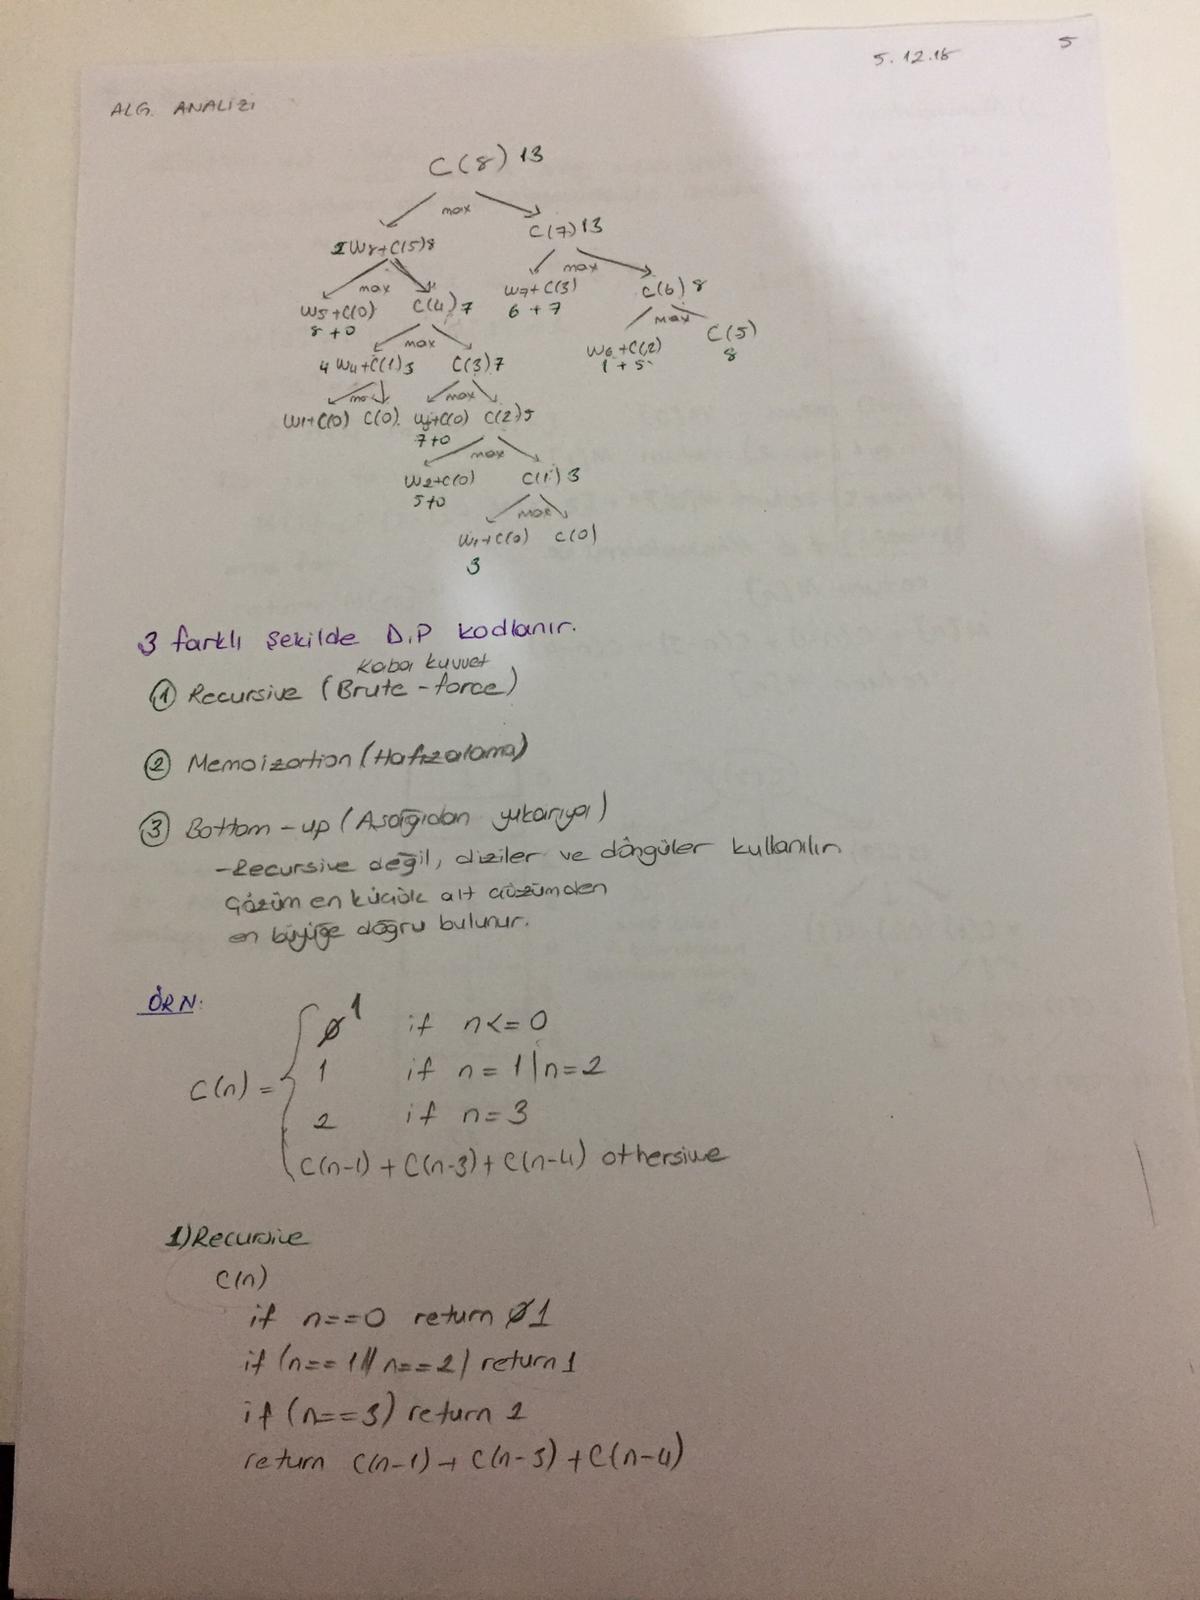 5.12.18
5
ALG. ANALİZİ
C(8) 13
max
2W8+C(5)8
C(7) 13
max
max
W5+C(0)
C(4) 7
W7+C(3)
C(6) 8
8+0
6+7
max
max
4 W4+C(1)3
C(3)7
W6+C(2)
C(5)
1+5
8
max
max
W1+C(0) C(0)
W3+C(0)
C(2)5
7+0
max
W2+C(0)
C(1) 3
5+0
max
W1+C(0)
C(0)
3
3 farklı şekilde D.P kodlanır.
Kaba kuvvet
① Recursive (Brute-force)
② Memoizartion (Hafızalama)
③ Bottom-up (Asağıdan yukarıya)
-Recursive değil, diziler ve döngüler kullanılır
Çözüm en küçük alt çözümden
en büyüğe doğru bulunur.
ÖRN:
1 if n<=0
C(n) =
1 if n=1|n=2
2 if n=3
C(n-1) + C(n-3) + C(n-4) othersiwe
1)Recursive
C(n)
if n==0 return 1
if (n==1 || n==2) return 1
if (n==3) return 2
return C(n-1) + C(n-3) + C(n-4)